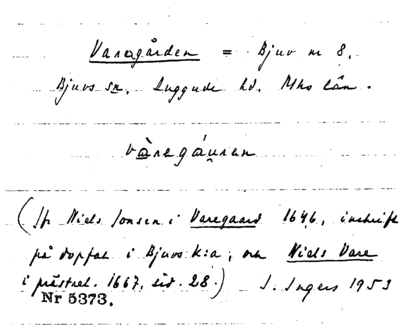 Varagården = Bjuv nr 8.
Bjuvs sn, Luggude hd. Mhs län.
vàregáuren
(Jfr Niels Jonsen i Varegaard 1646, inskrift
på dopfat i Bjuvs k:a, och Niels Vare
i prästrel. 1667, sid. 28.) I. Ingers 1953
Nr 5373.